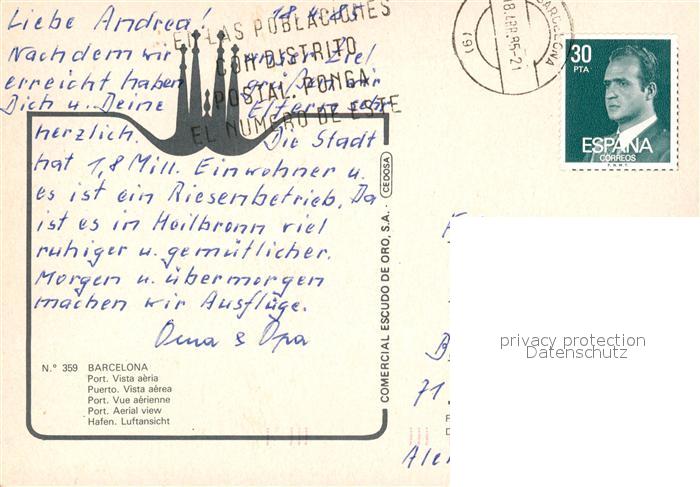 Liebe Andrea! 18.4.85
Nachdem wir unser Ziel
erreicht haben grüßen wir
Dich u. Deine Eltern sehr
herzlich. Die Stadt
hat 1,8 Mill. Einwohner u.
es ist ein Riesenbetrieb. Da
ist es in Heilbronn viel
ruhiger u. gemütlicher.
Morgen u. übermorgen
machen wir Ausflüge.
Oma & Opa
EN LAS POBLACIONES
CON DISTRITO
POSTAL, PONGA
EL NUMERO DE ESTE
BARCELONA
(6)
18.ABR.85-21
30
PTA
ESPAÑA
CORREOS
F.N.M.T.
CEDOSA
COMERCIAL ESCUDO DE ORO, S.A.
N.° 359 BARCELONA
Port. Vista aèria
Puerto. Vista aérea
Port. Vue aérienne
Port. Aerial view
Hafen. Luftansicht
71
privacy protection
Datenschutz